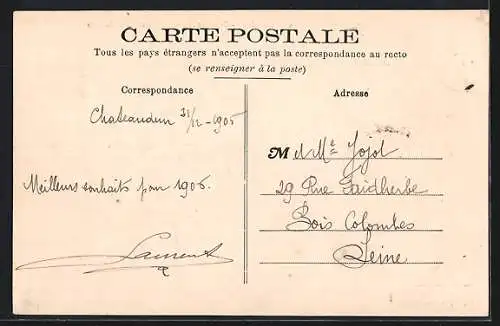 CARTE POSTALE
Tous les pays étrangers n'acceptent pas la correspondance au recto
(se renseigner à la poste)
Correspondance
Chateaudun 31/12 - 1905
Meilleurs souhaits pour 1906.
Laurent
Adresse
M et Me Jojot
29 Rue Faidherbe
Bois Colombes
Seine